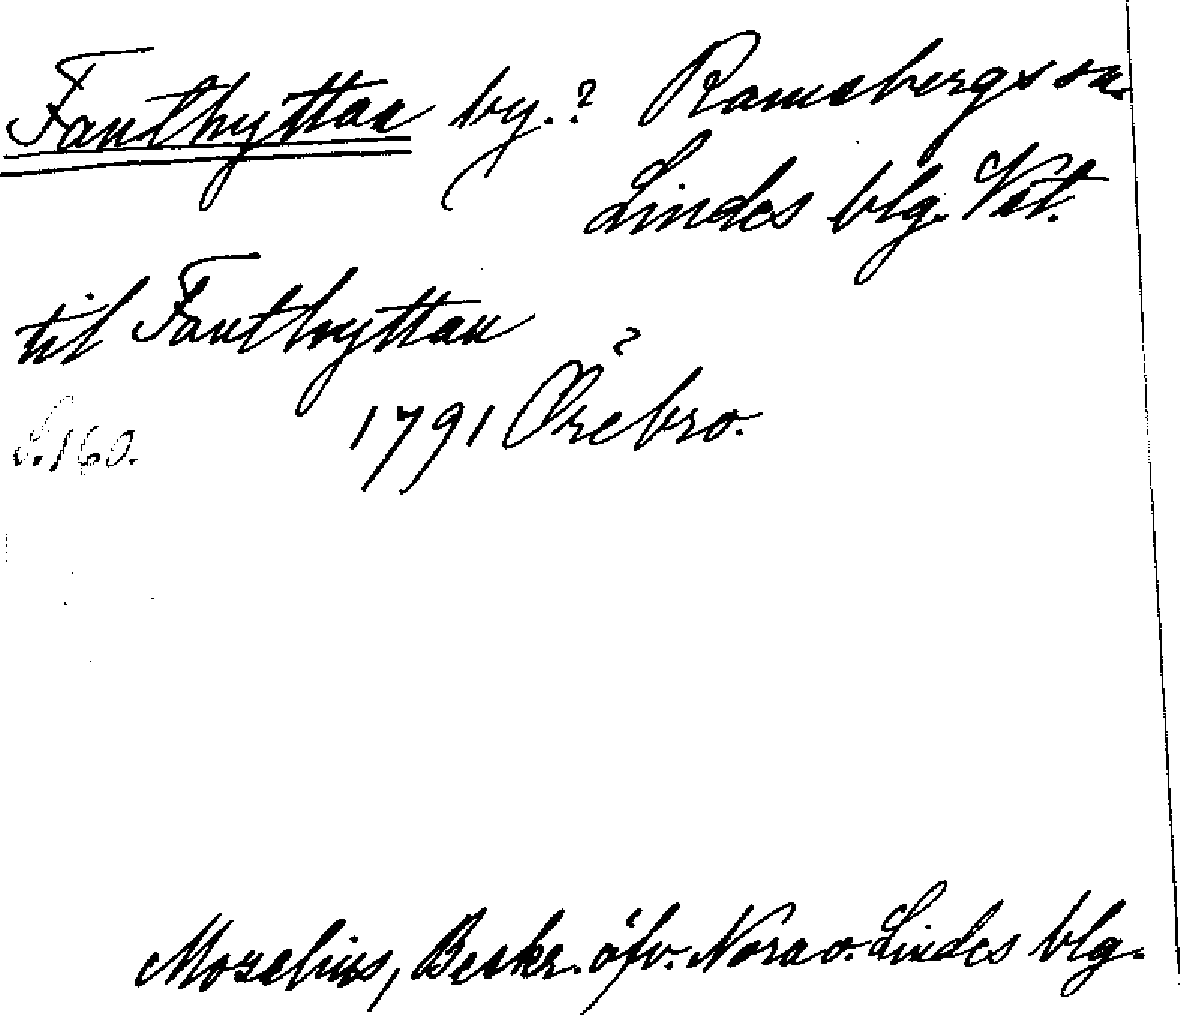 Fanthyttan by.? Ramsbergs sn.
Lindes blg. Vstl.
til Fanthyttan
?
S. 160. 1791 Örebro.
Mozelius, Beskr. öfv. Nora o. Lindes blg.